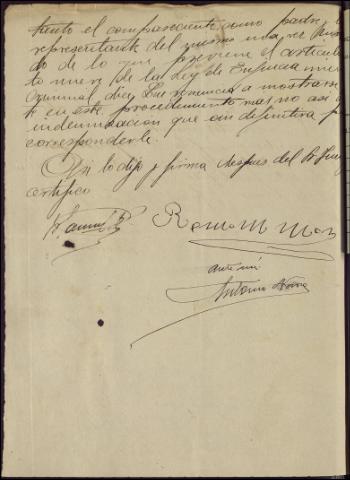 tento el compareciente como padre
representante del mismo una vez
do de lo que previene el articulo
to nueve de la Ley de Enjuiciamien
Criminal, dice: Que renuncia a mostrarse
te en este procedimiento mas no asi a
indemnizacion que en definitiva p
corresponderle.
Asi lo dijo y firma despues del Sr Juez
certifico
Ramon Mas
ante mi
Antonio